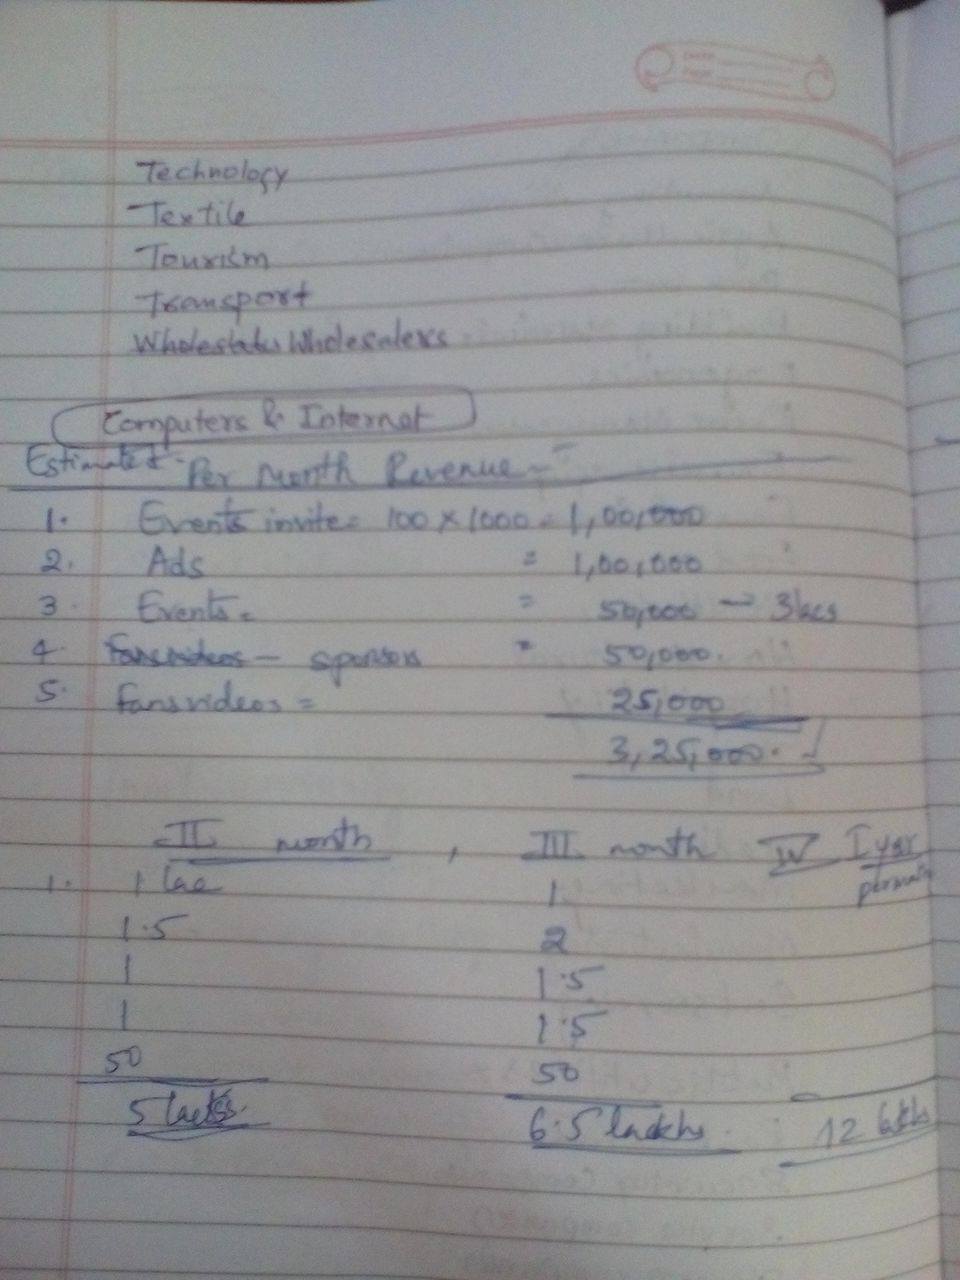 Technology
Textile
Tourism
Transport
Wholesalers
Computers & Internet
Estimated Per Month Revenue -
1. Events invite = 100 x 1000 = 1,00,000
2. Ads = 1,00,000
3. Events = 50,000 - 3 lacs
4. Fansvideos - sponsors = 50,000.
5. Fansvideos = 25,000
3,25,000.
II month , III month IV I year
1. 1 Lac 1
1.5 2
1 1.5
1 1.5
50 50
5 6.5 lackhs 12